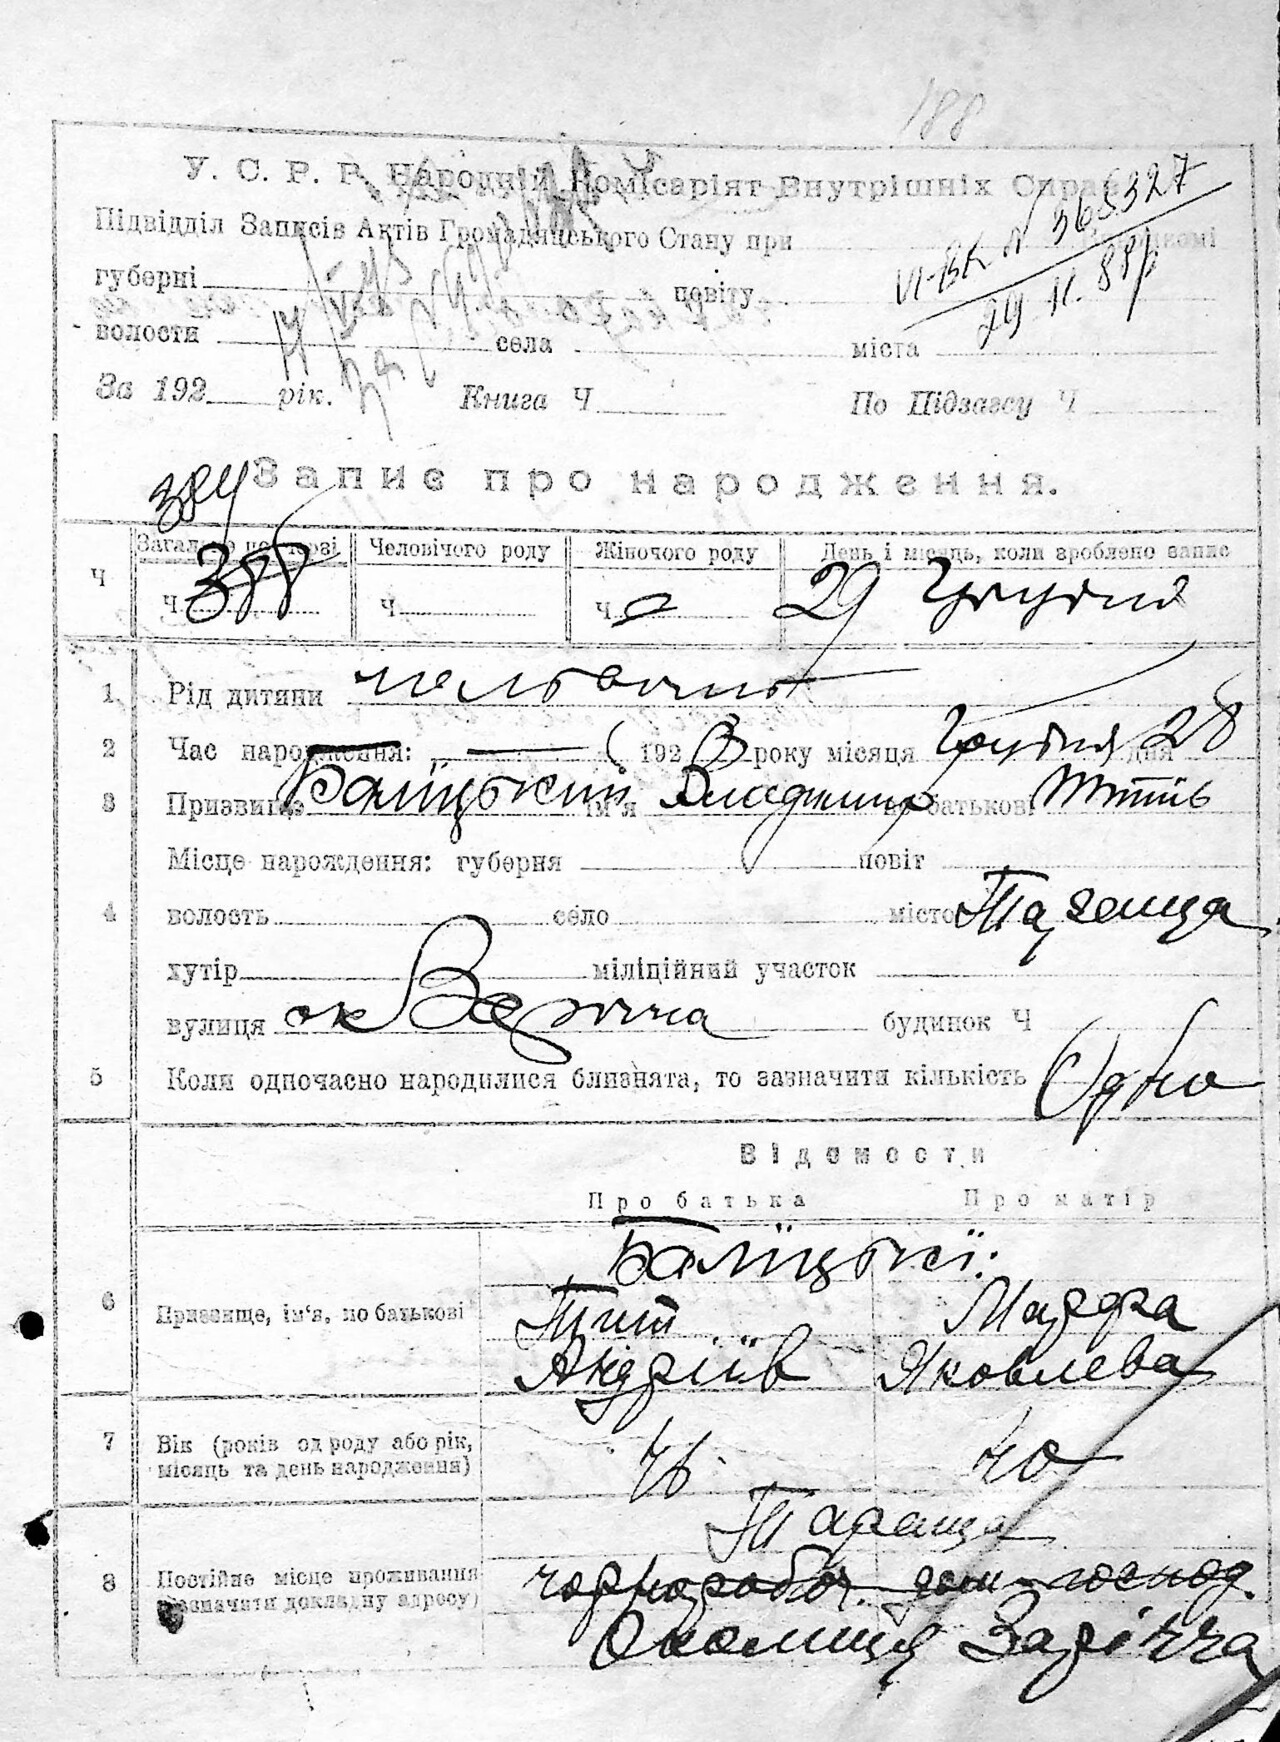 188
У. С. Р. Р. Народній Комісаріят Внутрішніх Справ
Підвідділ Записів Актів Громадянського Стану при
VI-БК № 368327
губерні повіту
24 11. 88р
волости села міста
За 192 рік. Книга Ч По Підзагсу Ч
384
Запис про народження.
Загальне по черзі Чоловічого роду Жіночого роду День і місяць, коли зроблено запис
Ч Ч 388 Ч Ч 29 Грудня
1 Рід дитини
2 Час народження: 192 року місяця Грудня дня 28
3 Призвище Баліцький ім'я Владимир по батькові Титів
Місце народження: губерня повіт
4 волость село місто Тараща
хутір міліційний участок
вулиця ок Зарічча будинок Ч
5 Коли одночасно народилися близнята, то зазначити кількість Одно
Відомости
Про батька Про матір
Баліцькі:
6 Призвище, ім'я, по батькові Тит Марфа
Андріїв Яковлева
7 Вік (років од роду або рік, місяць та день народження) 46 40
Тараща
8 Постійне місце проживання (зазначити докладну адресу) чорнороб. дом-господ.
Околиця Зарічча